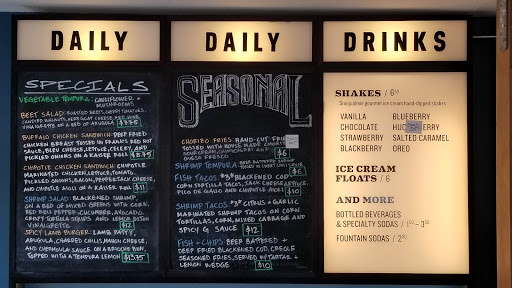 DAILY
SPECIALS
VEGETABLE TEMPURA: CAULIFLOWER + MUSHROOMS
BEET SALAD: ROASTED BEETS, CHERRY TOMATOES,
CANDIED WALNUTS, HERB GOAT CHEESE, RED WINE
VINAIGRETTE ON A BED OF ARUGULA
BUFFALO CHICKEN SANDWICH: DEEP FRIED
CHICKEN BREAST TOSSED IN FRANKS RED HOT
SAUCE, BLEU CHEESE, LETTUCE, CELERY, AND
PICKLED ONIONS ON A KAISER ROLL
CHIPOTLE CHICKEN SANDWICH: CHIPOTLE
MARINATED CHICKEN, LETTUCE, TOMATO,
PICKLED ONIONS, BACON, PEPPER JACK CHEESE
AND CHIPOTLE AIOLI ON A KAISER ROLL $11
SHRIMP SALAD: BLACKENED SHRIMP,
ON A BED OF MIXED GREENS WITH CORN,
RED BELL PEPPER, CUCUMBER, AVOCADO,
CRISPY TORTILLA STRIPS AND LEMON DIJON
VINAIGRETTE $12
SPICY LAMB BURGER: LAMB PATTY,
ARUGULA, CHARRED CHILIS, MAHON CHEESE,
AND CHERMOULA SAUCE ON A BRIOCHE BUN,
TOPPED WITH A TEMPURA LEMON $13.75
DAILY
SEASONAL
CHORIZO FRIES: HAND-CUT
TOSSED WITH HOUSE MADE
SOUR CREAM,
QUESO FRESCO $6
SHRIMP TEMPURA
FISH TACOS *3* BLACKENED COD
CORN TORTILLA TACOS, JACK CHEESE, LETTUCE,
PICO DE GALLO AND CHIPOTLE AIOLI $10
SHRIMP TACOS *3* CITRUS + GARLIC
MARINATED SHRIMP TACOS ON CORN
TORTILLAS, CORN, MIXED CABBAGE AND
SPICY G SAUCE $12
FISH + CHIPS BEER BATTERED +
DEEP FRIED BLACKENED COD, CREOLE
SEASONED FRIES, SERVED W/ TARTAR +
LEMON WEDGE $10
DRINKS
SHAKES / 6
Snoqualmie gourmet ice cream hand-dipped shakes
VANILLA BLUEBERRY
CHOCOLATE
STRAWBERRY SALTED CARAMEL
BLACKBERRY OREO
ICE CREAM
FLOATS / 6
AND MORE
BOTTLED BEVERAGES
& SPECIALTY SODAS / 150 - 350
FOUNTAIN SODAS / 250